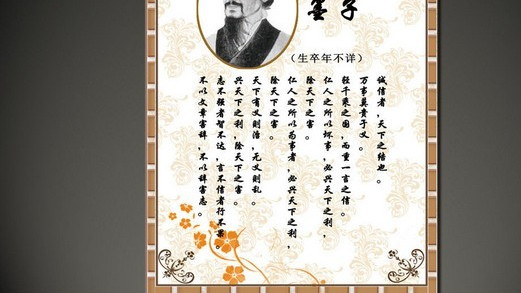 墨子
（生卒年不详）
诚信者，天下之结也。
万事莫贵于义。
轻千乘之国，而重一言之信。
仁人之所以坏事，必兴天下之利，
除天下之害。
仁人之所以为事者，必兴天下之利，
除天下之害。
天下有义则治，无义则乱。
兴天下之利，除天下之害。
志不强者智不达，言不信者行不果。
不以文章害辞，不以辞害志。